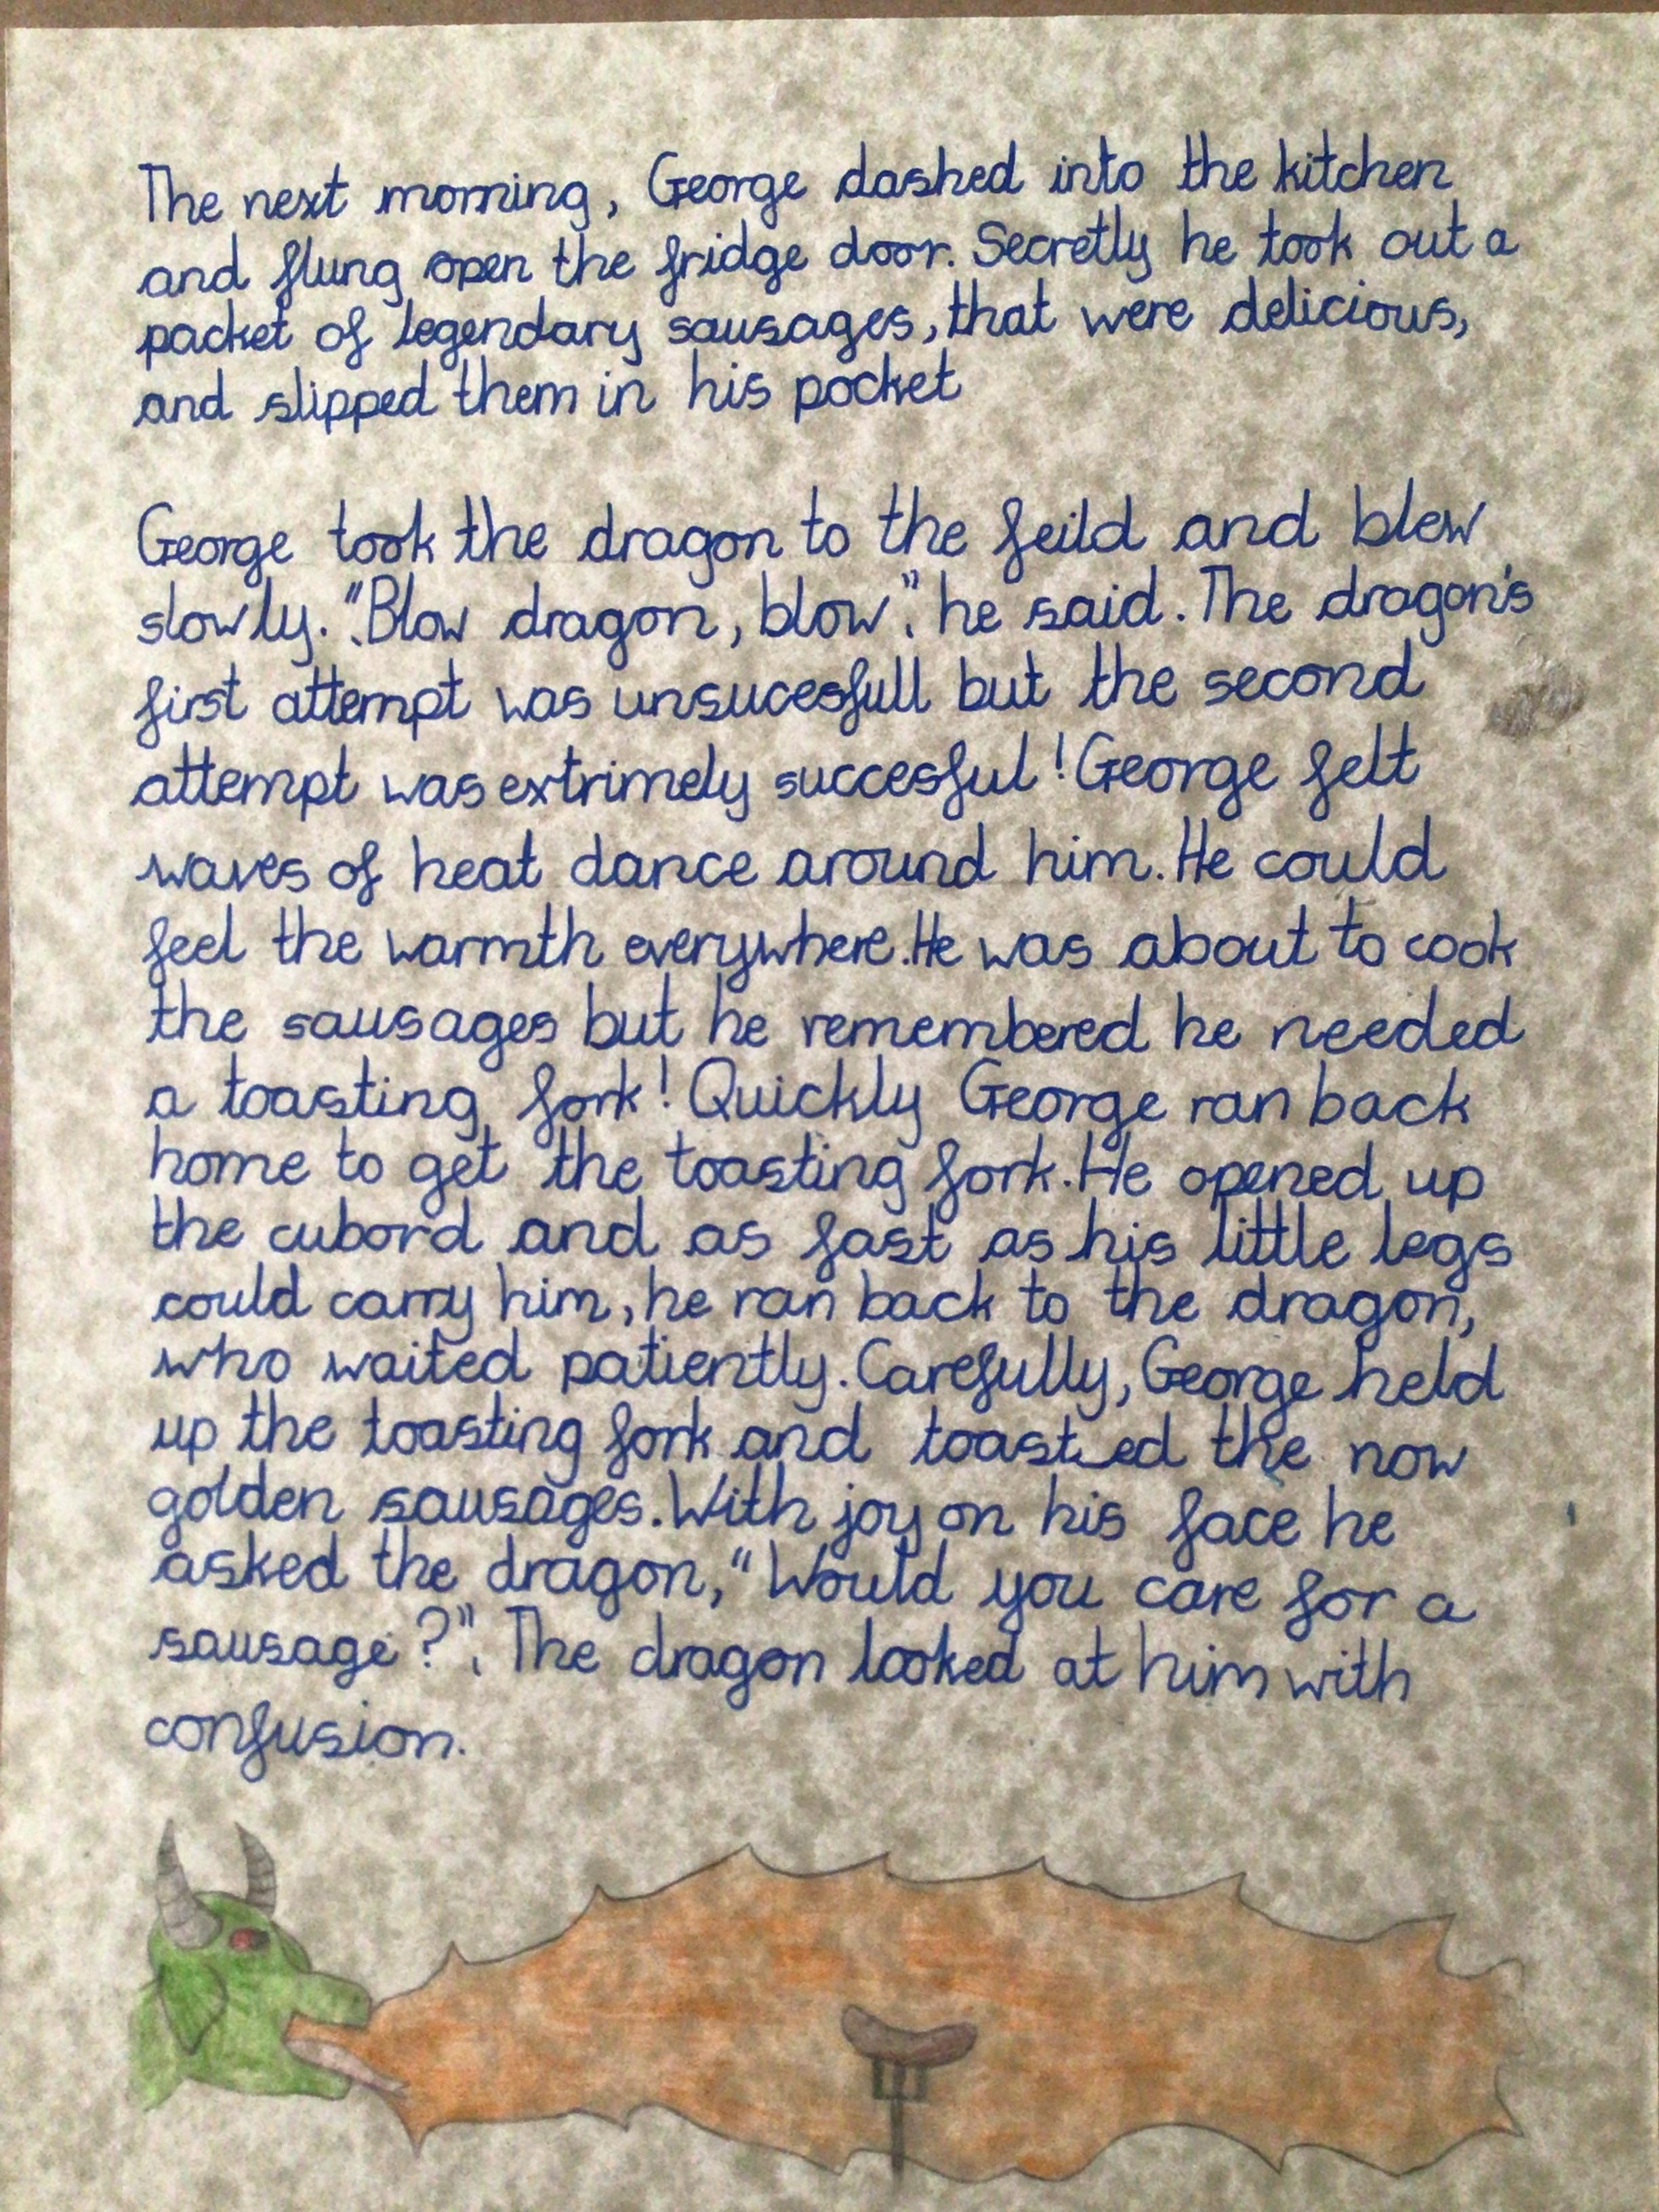 The next morning, George dashed into the kitchen
and flung open the fridge door. Secretly he took out a
packet of legendary sausages, that were delicious,
and slipped them in his pocket
George took the dragon to the feild and blew
slowly. "Blow dragon, blow". he said. The dragon's
first attempt was unsucesfull but the second
attempt was extrimely succesful! George felt
waves of heat dance around him. He could
feel the warmth everywhere. He was about to cook
the sausages but he remembered he needed
a toasting fork! Quickly George ran back
home to get the toasting fork. He opened up
the cubord and as fast as his little legs
could carry him, he ran back to the dragon,
who waited patiently. Carefully, George held
up the toasting fork and toasted the now
golden sausages. With joy on his face he
asked the dragon, "Would you care for a
sausage?". The dragon looked at him with
confusion.